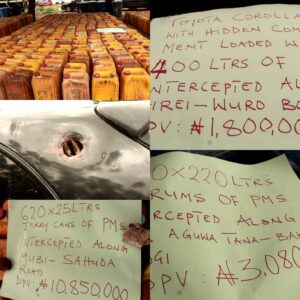 TOYOTA COROLLA
WITH HIDDEN COM
MENT LOADED W
400 LTRS OF
INTERCEPTED ALONG
IREI-WURO BA
DPV: ₦1,800,00
620x25LTRS
JERRY CANS OF PMS
INTERCEPTED ALONG
MUBI-SAHUDA
ROAD
DPV: ₦10.850,000
0x220LTRS
RUMS OF PMS
RCEPTED ALONG
AGUWA TANA-BA
OGI
DPV: ₦3,080